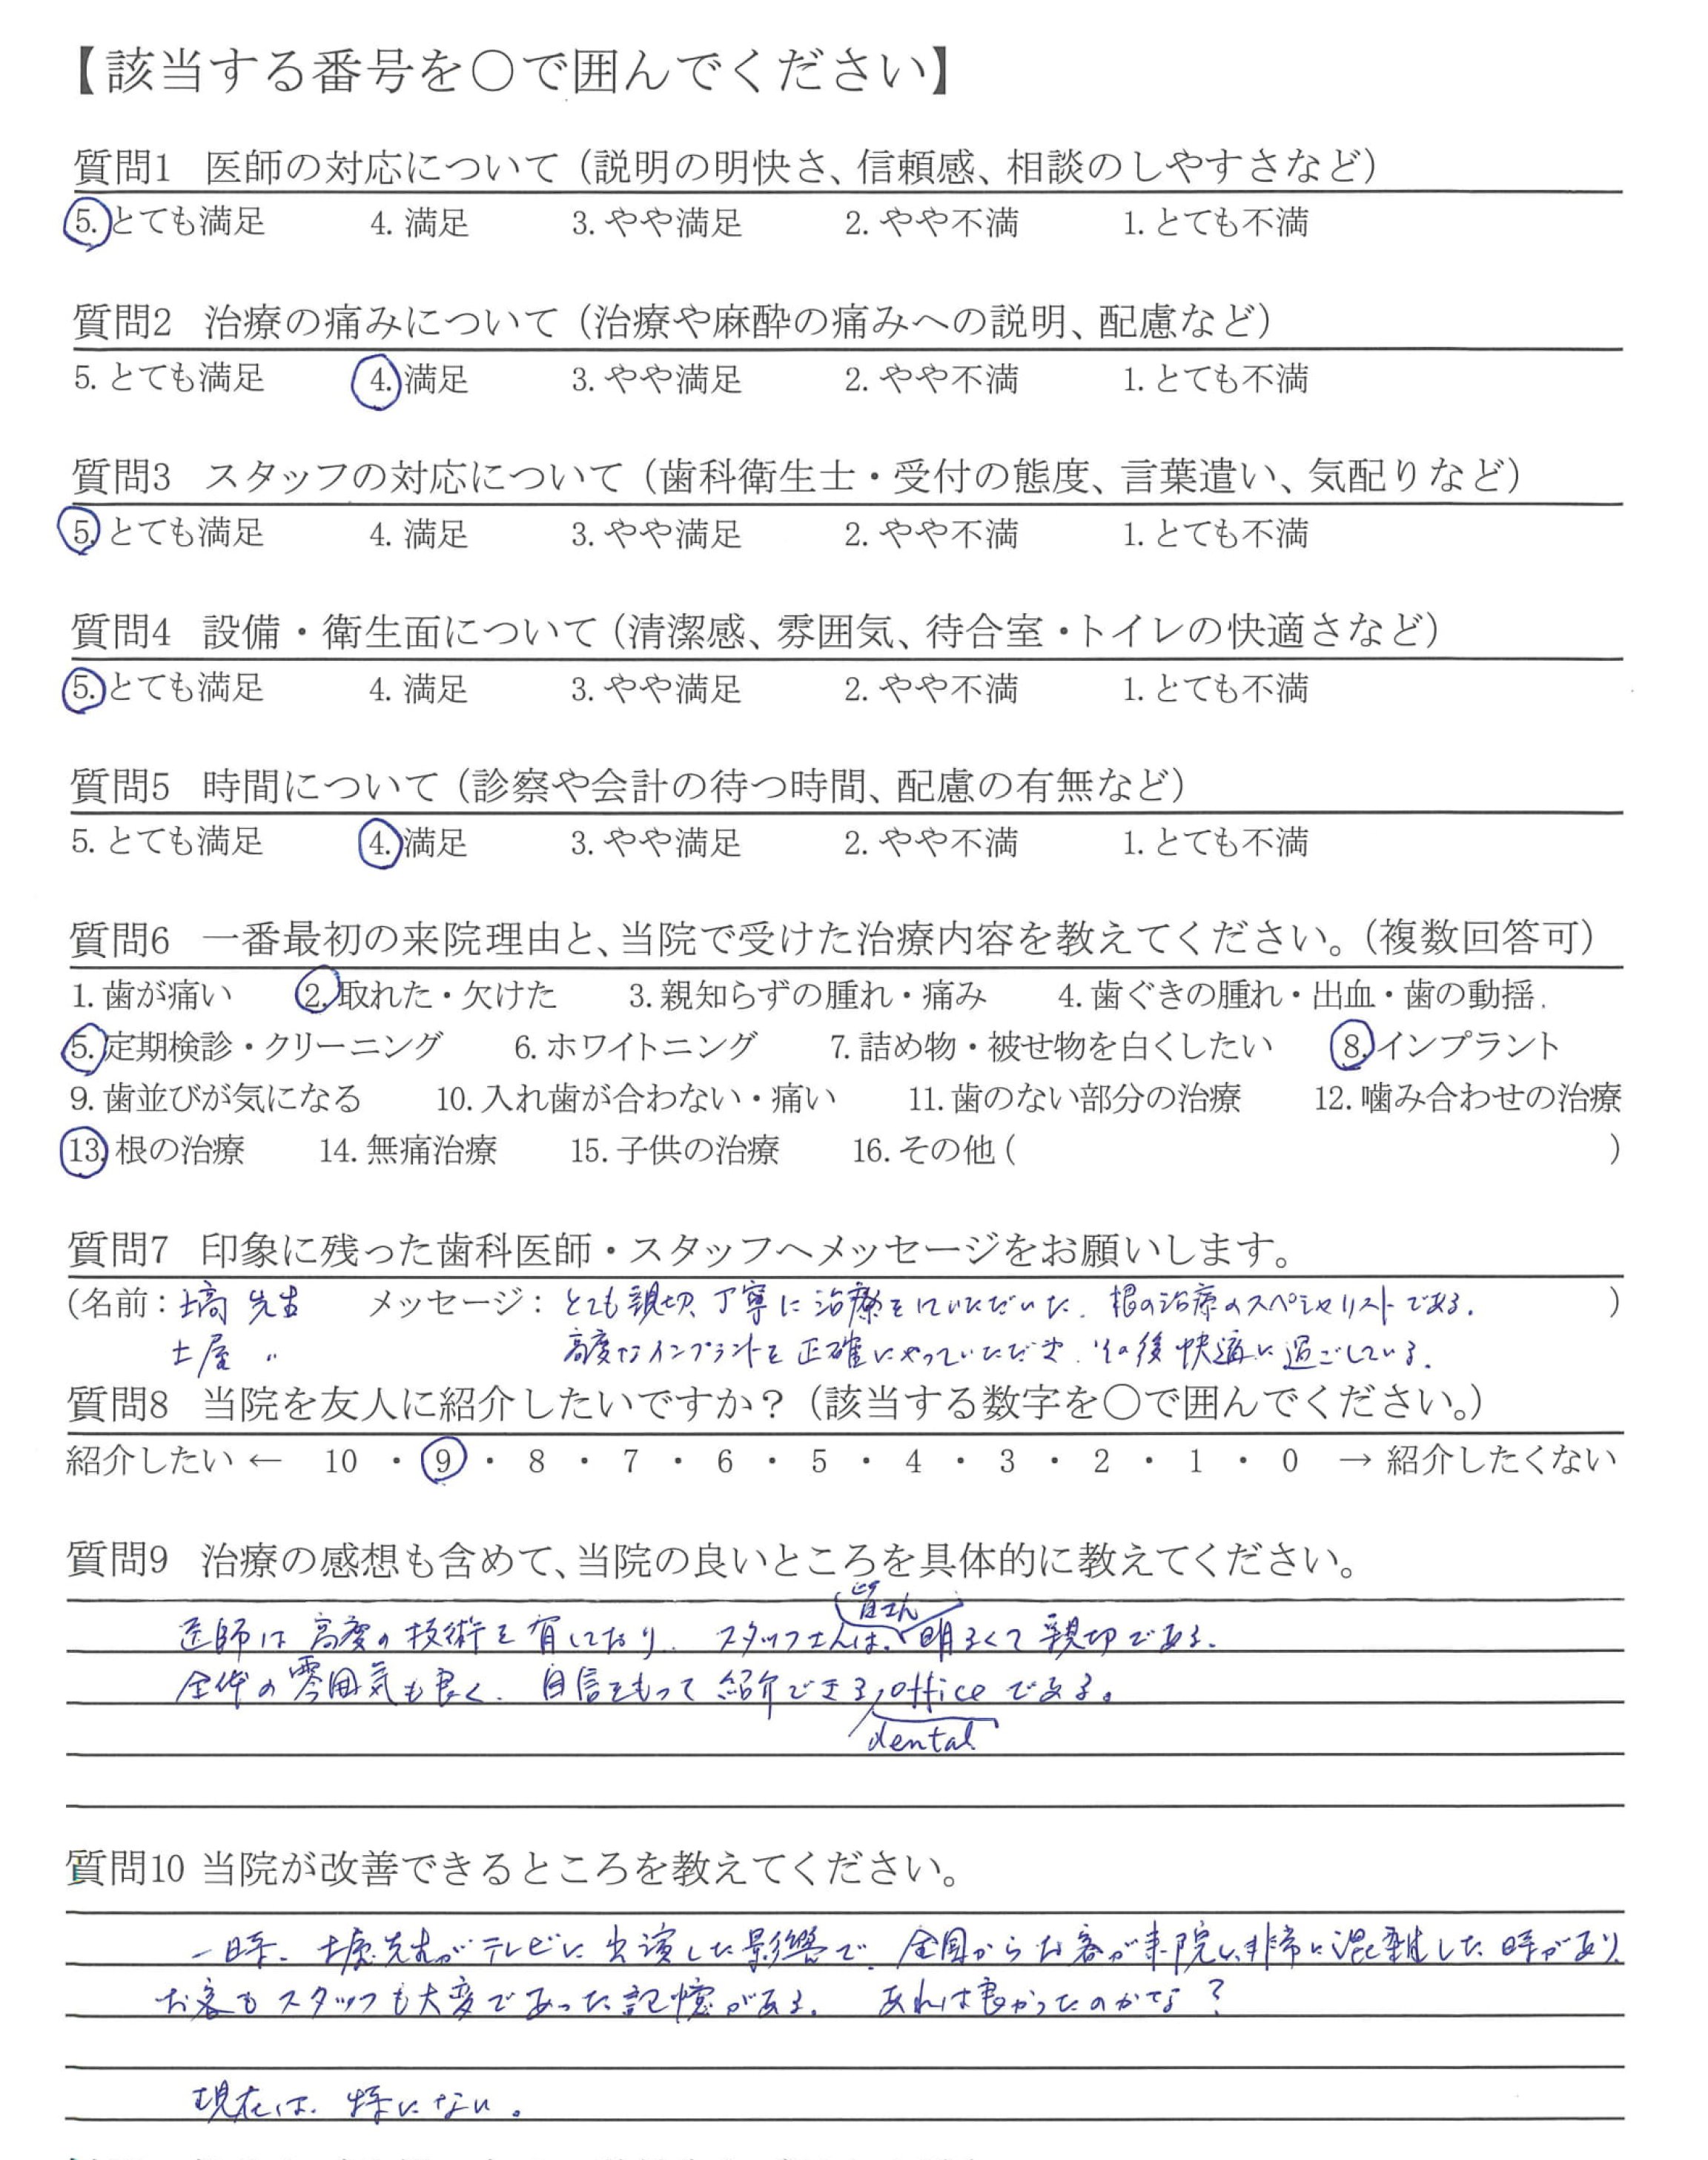 【該当する番号を○で囲んでください】
質問1 医師の対応について（説明の明快さ、信頼感、相談のしやすさなど）
5. とても満足 4. 満足 3. やや満足 2. やや不満 1. とても不満
質問2 治療の痛みについて（治療や麻酔の痛みへの説明、配慮など）
5. とても満足 4. 満足 3. やや満足 2. やや不満 1. とても不満
質問3 スタッフの対応について（歯科衛生士・受付の態度、言葉遣い、気配りなど）
5. とても満足 4. 満足 3. やや満足 2. やや不満 1. とても不満
質問4 設備・衛生面について（清潔感、雰囲気、待合室・トイレの快適さなど）
5. とても満足 4. 満足 3. やや満足 2. やや不満 1. とても不満
質問5 時間について（診察や会計の待つ時間、配慮の有無など）
5. とても満足 4. 満足 3. やや満足 2. やや不満 1. とても不満
質問6 一番最初の来院理由と、当院で受けた治療内容を教えてください。（複数回答可）
1. 歯が痛い 2. 取れた・欠けた 3. 親知らずの腫れ・痛み 4. 歯ぐきの腫れ・出血・歯の動揺
5. 定期検診・クリーニング 6. ホワイトニング 7. 詰め物・被せ物を白くしたい 8. インプラント
9. 歯並びが気になる 10. 入れ歯が合わない・痛い 11. 歯のない部分の治療 12. 噛み合わせの治療
13. 根の治療 14. 無痛治療 15. 子供の治療 16. その他 ( )
質問7 印象に残った歯科医師・スタッフへメッセージをお願いします。
（名前： 先生 メッセージ：とても親切、丁寧に治療をしていただいた。根の治療のスペシャリストである。）
土屋 〃 高度なインプラントを正確にやっていただき、その後快適に過ごしている。
質問8 当院を友人に紹介したいですか？（該当する数字を○で囲んでください。）
紹介したい ← 10 ・ 9 ・ 8 ・ 7 ・ 6 ・ 5 ・ 4 ・ 3 ・ 2 ・ 1 ・ 0 → 紹介したくない
質問9 治療の感想も含めて、当院の良いところを具体的に教えてください。
皆さん
医師は高度の技術を有しており、スタッフさんは、明るくて親切である。
全体の雰囲気も良く、自信をもって紹介できる office である。
dental
質問10 当院が改善できるところを教えてください。
一時、 先生がテレビに出演した影響で、全国からお客が来院し、非常に混雑した時があり、
お客もスタッフも大変であった記憶がある。 あれは良かったのかな？
現在は、特にない。